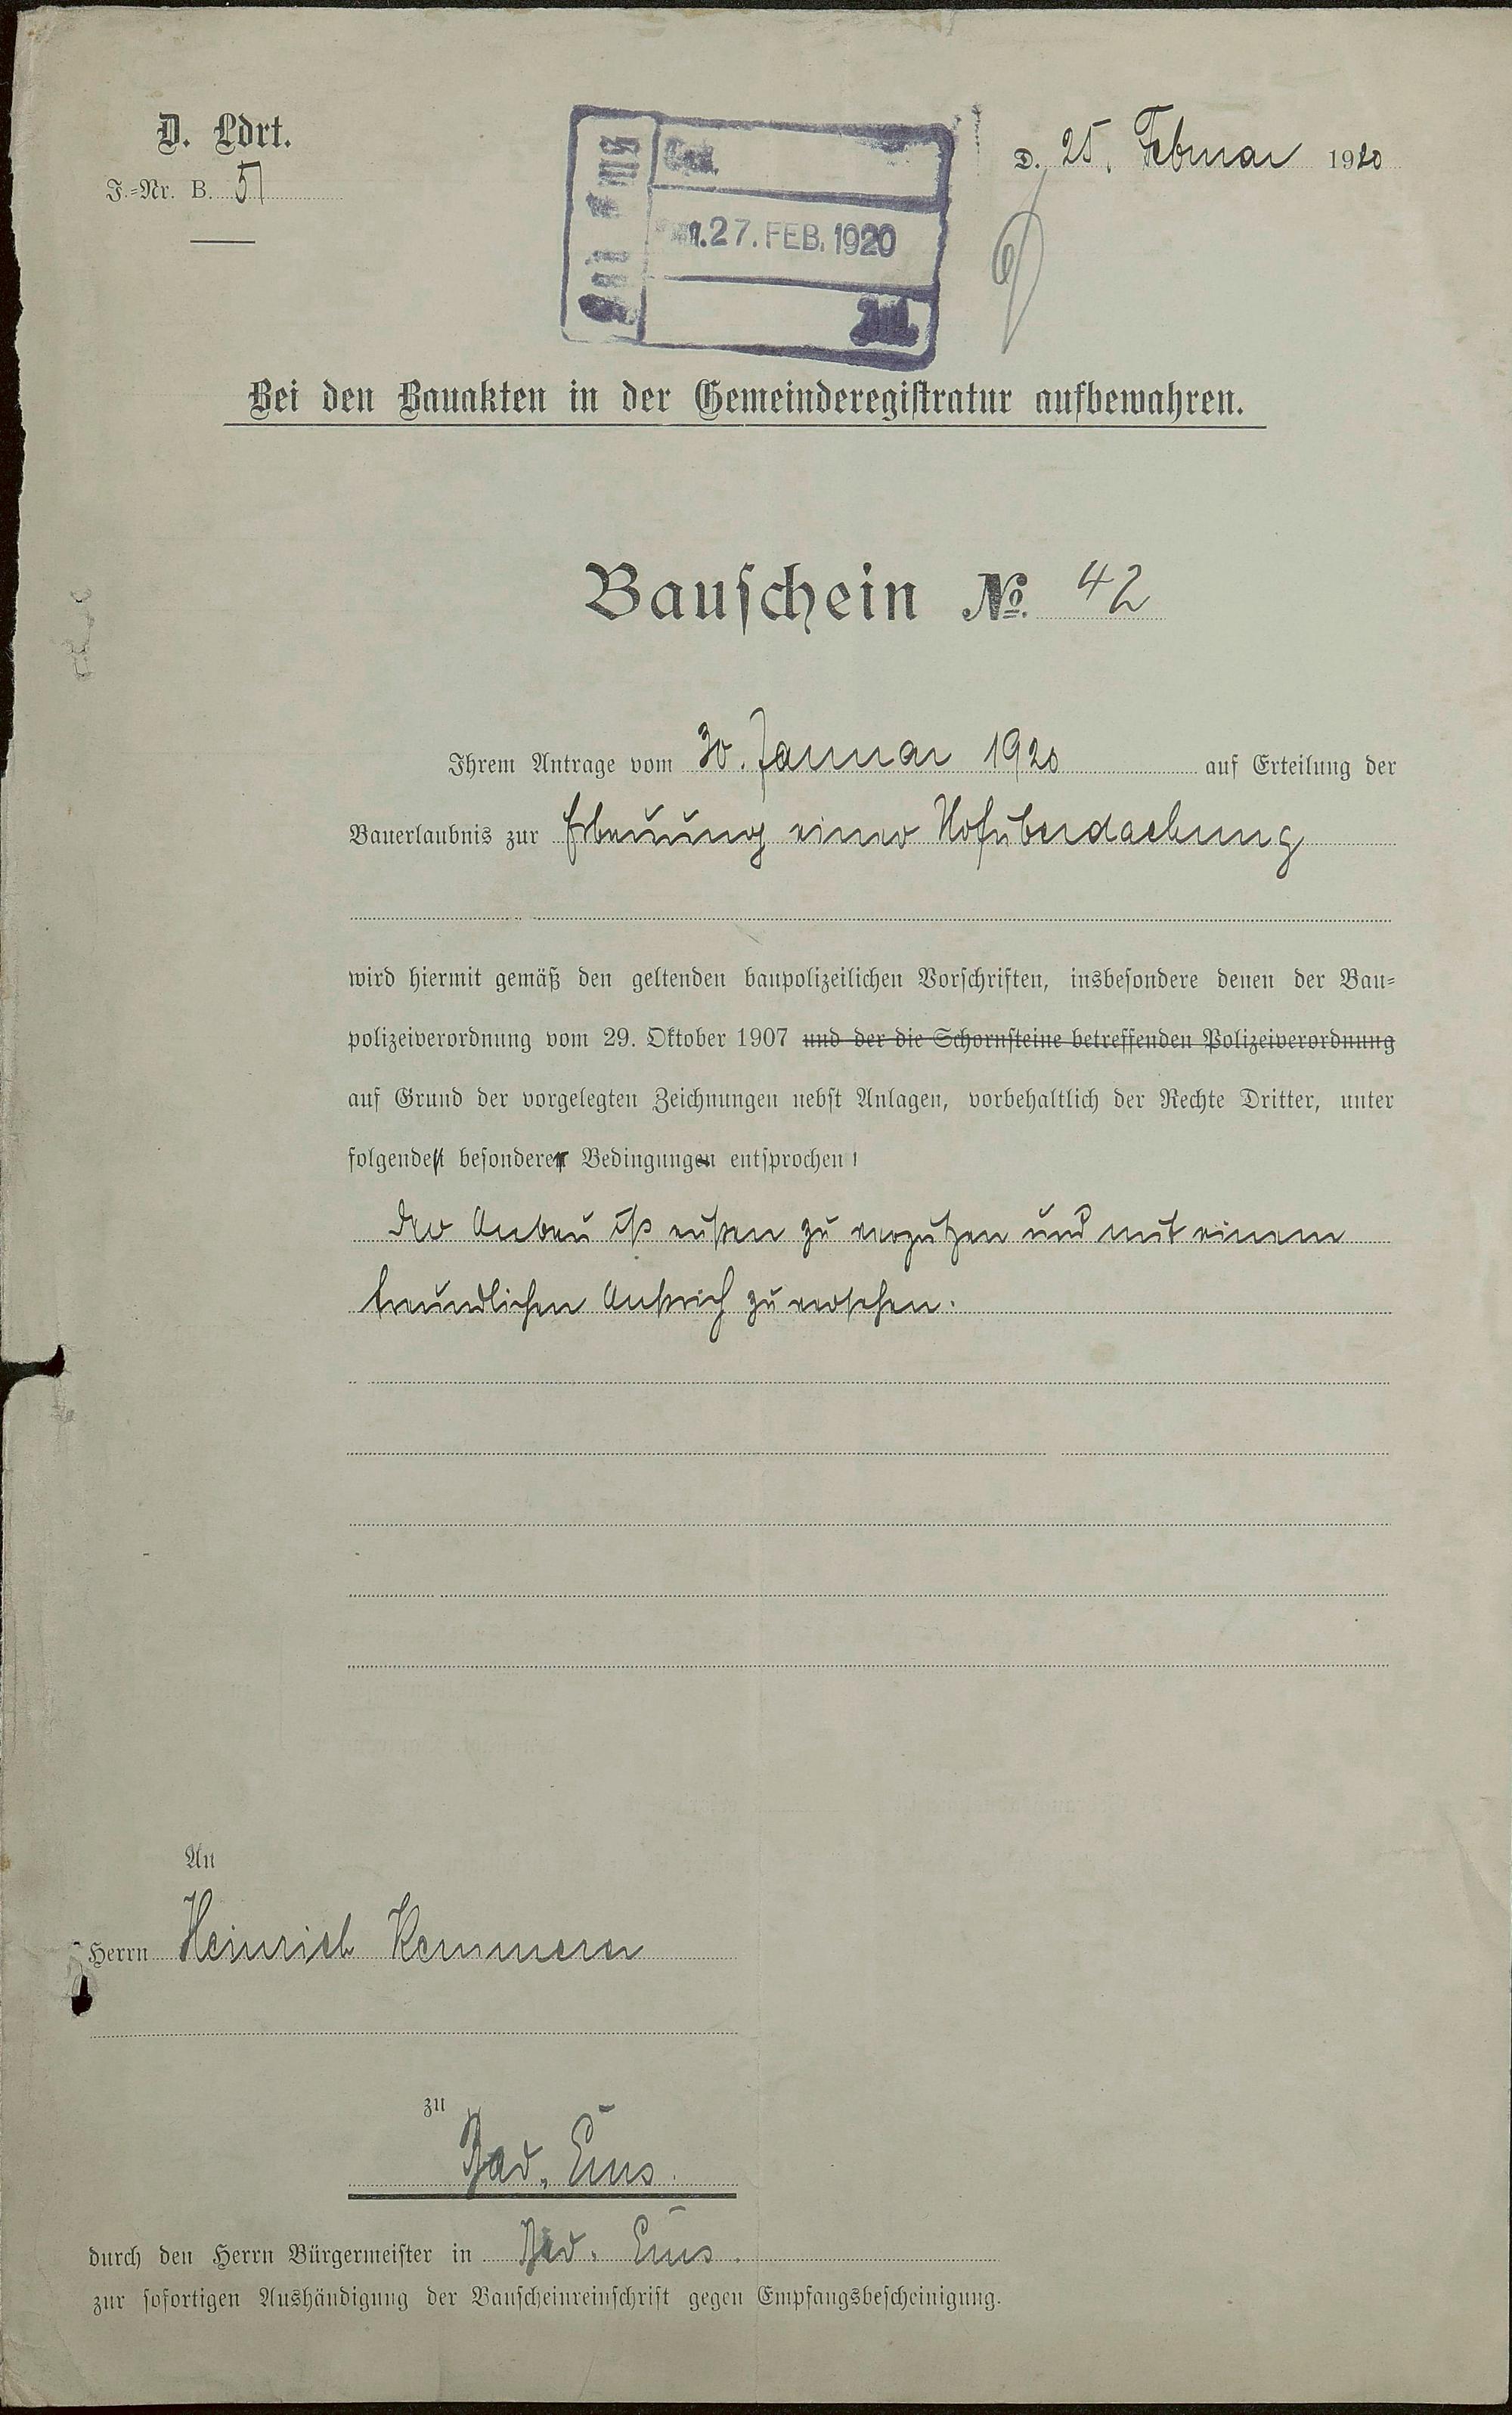 D. Ldrt.
D. 25. Februar 1920
J.=Nr. B. 51
27. FEB. 1920
Bei den Bauakten in der Gemeinderegistratur aufbewahren.
Bauschein No. 42
Ihrem Antrage vom 30. Januar 1920 auf Erteilung der
Bauerlaubnis zur Erbauung einer Hofüberdachung
wird hiermit gemäß den geltenden baupolizeilichen Vorschriften, insbesondere denen der Bau=
polizeiverordnung vom 29. Oktober 1907 und der die Schornsteine betreffenden Polizeiverordnung
auf Grund der vorgelegten Zeichnungen nebst Anlagen, vorbehaltlich der Rechte Dritter, unter
folgender besonderer Bedingung entsprochen:
Der Anbau ist außen zu verputzen und mit einem
freundlichen Anstrich zu versehen.
An
Herrn Heinrich Kemmerer
zu
Bad. Ems.
durch den Herrn Bürgermeister in Bad. Ems.
zur sofortigen Aushändigung der Bauscheinreinschrift gegen Empfangsbescheinigung.